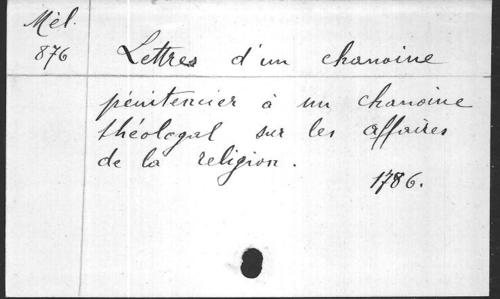 Mél.
876
Lettres d'un chanoine
pénitencier à un chanoine
théologal sur les affaires
de la religion.
1786.